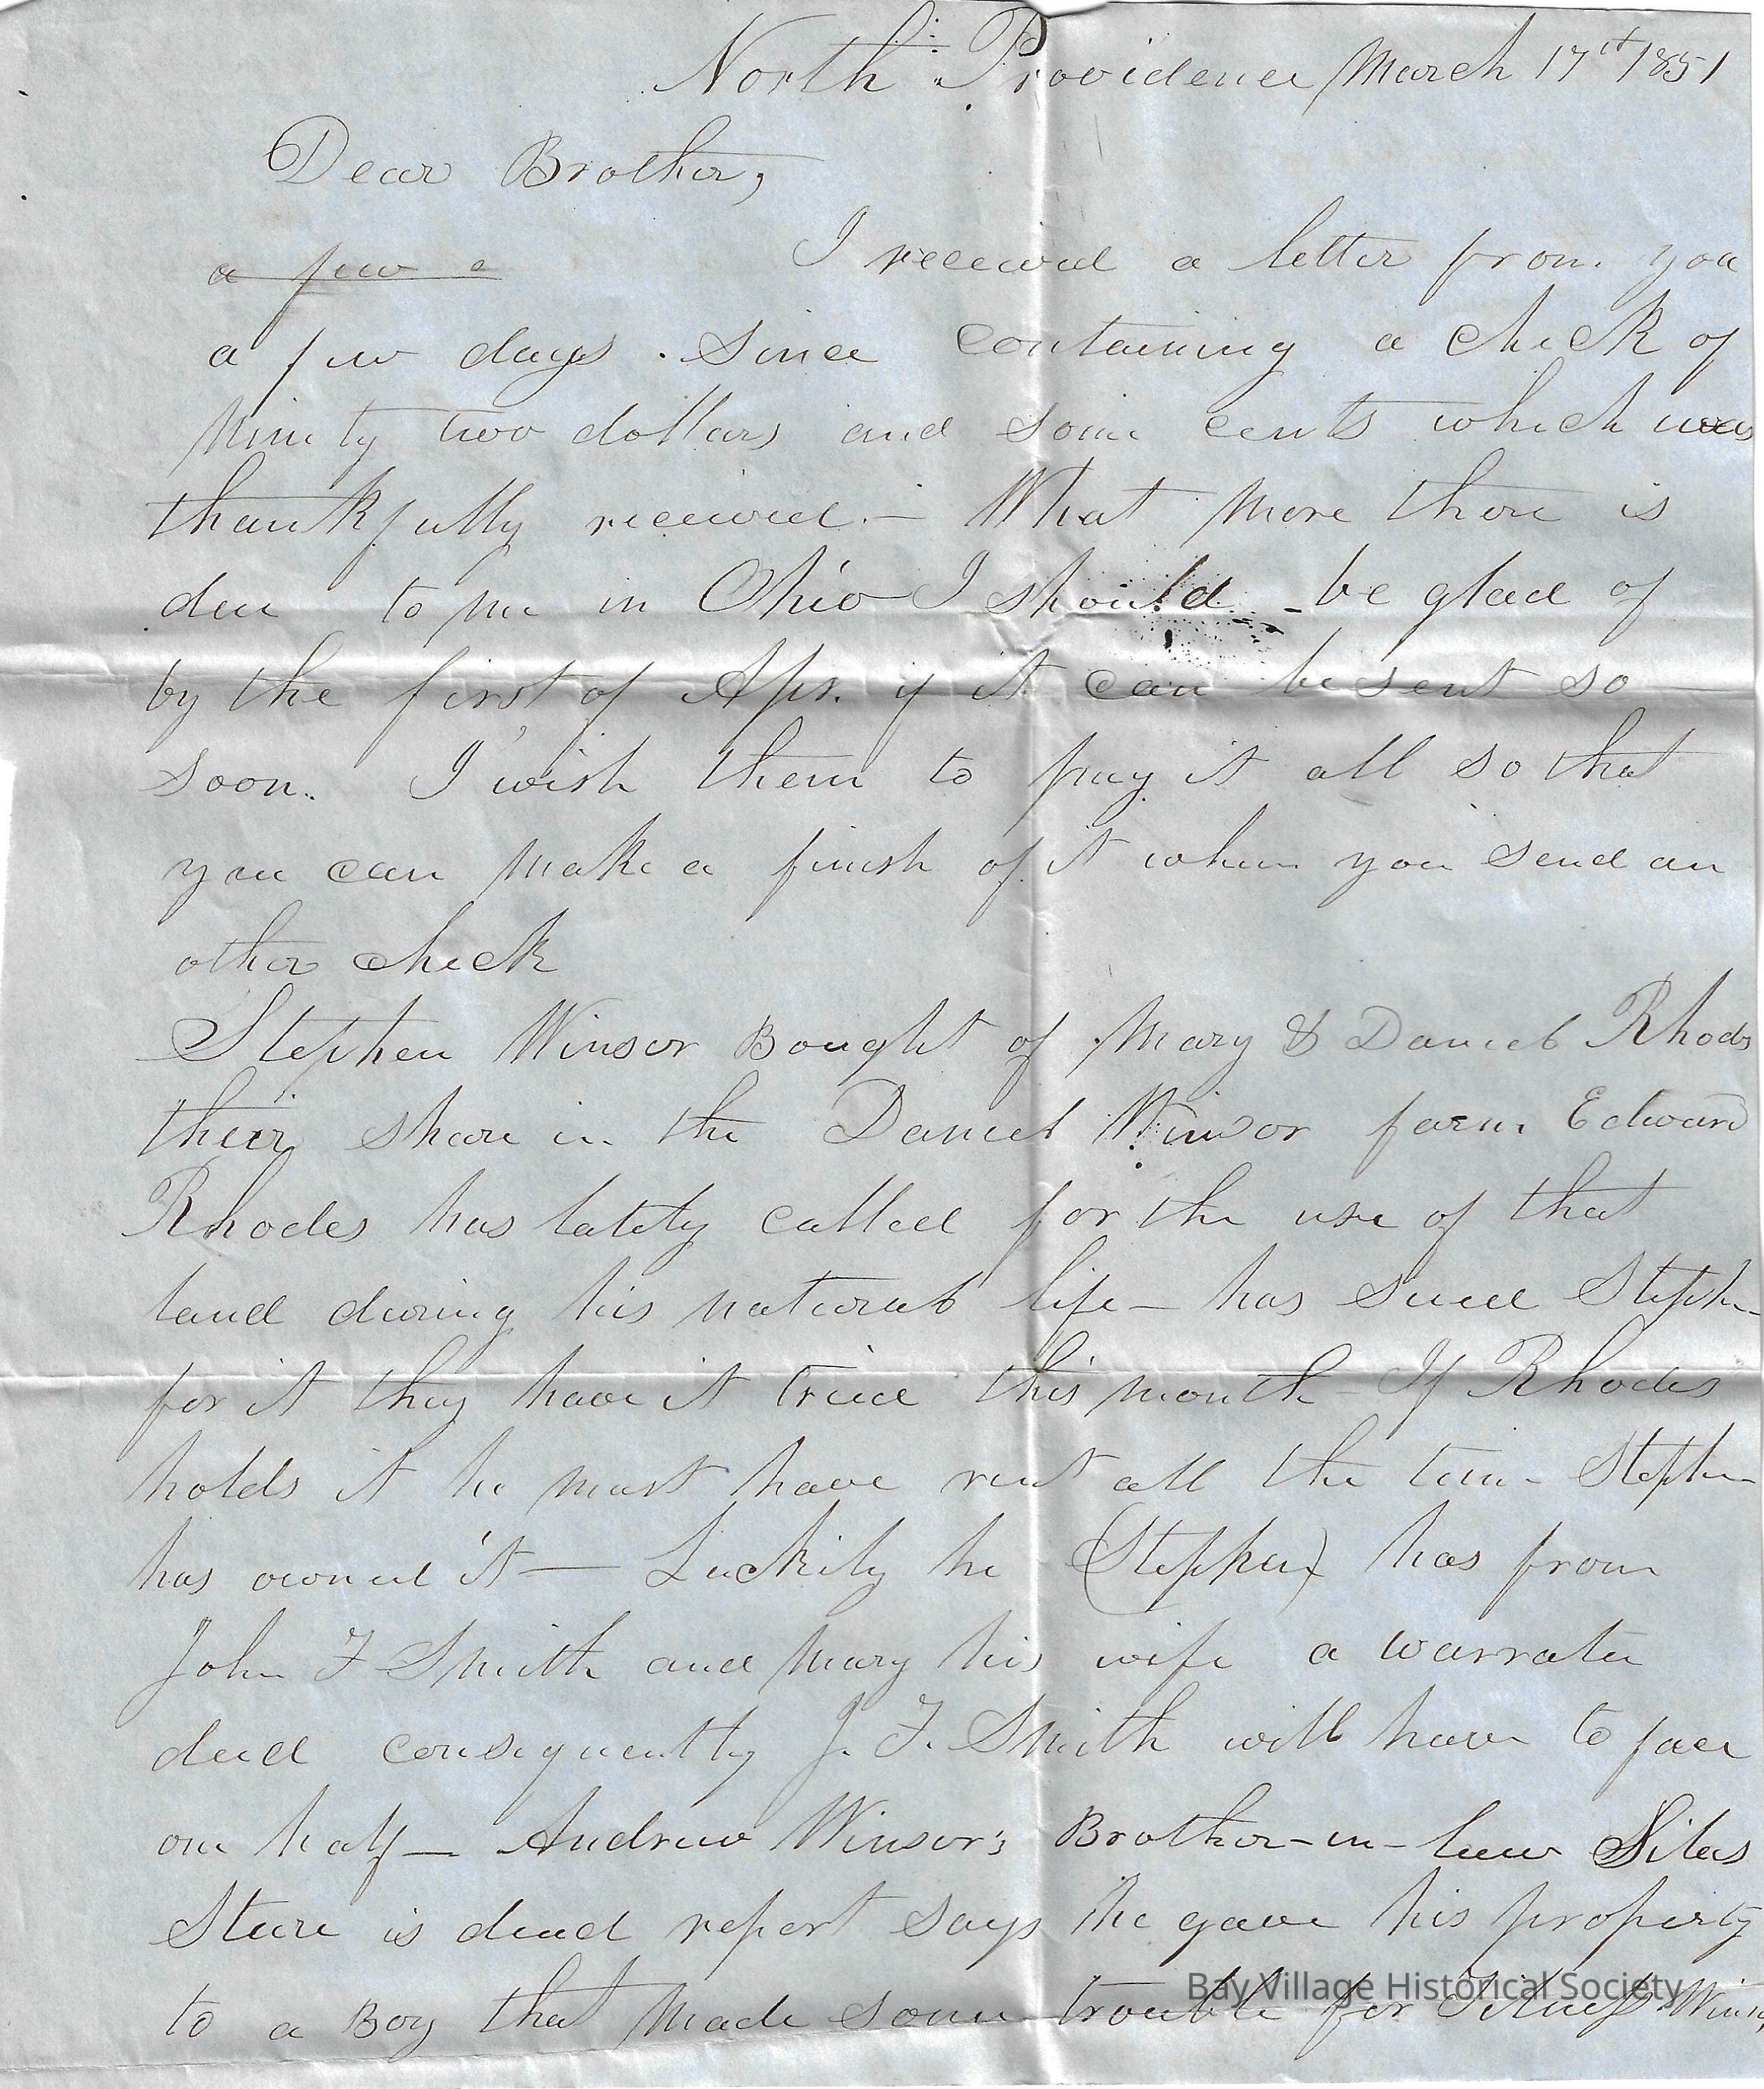 North Providence March 17th 1851
Dear Brother,
a few a I received a letter from you
a few days. Since containing a check of
Ninety two dollars and some cents which was
thankfully received.— What more there is
due to me in Ohio I should be glad of
by the first of Apr. if it can be sent so
soon. I wish them to pay it all so that
you can make a finish of it when you send an
other check
Stephen Winsor Bought of Mary & Daniel Rhods
their share in the Daniel Winsor farm Edward
Rhodes has lately called for the use of that
land during his natural life— has sued Stephen
for it they have it tried this month— If Rhodes
holds it he must have rent all the time Stephen
has owned it— Luckily he (Stephen) has from
John F Smith and Mary his wife a warratee
deed consequently J. F. Smith will have to face
one half— Andrew Winsor's Brother-in-law Silas
Steere is dead report says he gave his property
to a Boy that made some trouble for Winsor
Bay Village Historical Society